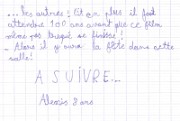 ... Des autres ! Et en plus il faut
attendre 100 ans avant que ce film
même pas truqué se finisse !
- Alors il y aura la fête dans cette
salle !
A SUIVRE...
Alexis 8 ans